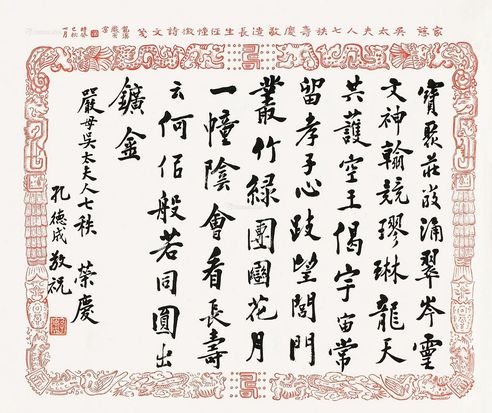 家慈吳太夫人七秩壽慶敬造長生徵詩文箋
寶聚莊嚴涌翠岑靈
文神翰競璆琳龍天
共護空王偈宇宙常
留孝子心跂望閭門
叢竹綠團圞花月
一幢陰會看長壽
云何佀般若同圓出
鑛金
嚴母吳太夫人七秩榮慶
孔德成敬祝